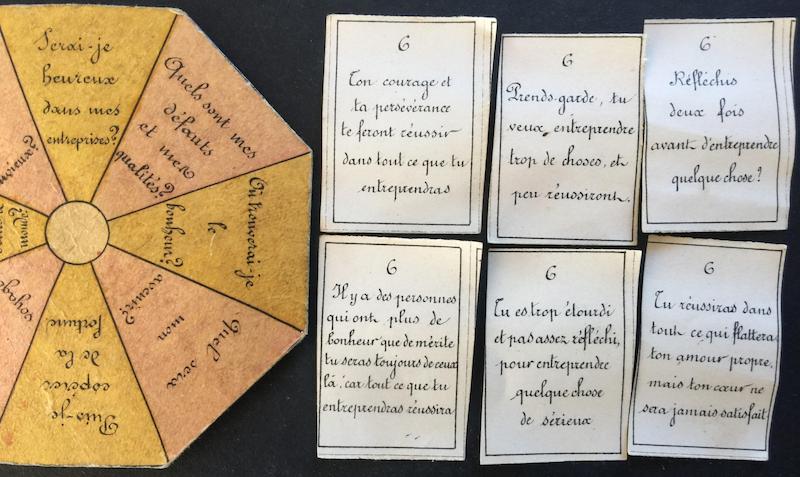 Serai-je
heureux
dans mes
entreprises?
Quels sont mes
défauts
et mes
qualités?
Où trouverai-je
le
bonheur?
Quel sera
mon
avenir?
Puis-je
espérer
de la
fortune
voyage
6
Ton courage et
ta persévérance
te feront réussir
dans tout ce que tu
entreprendras
6
Prends-garde, tu
veux entreprendre
trop de choses, et
peu réussiront.
6
Réfléchis
deux fois
avant d'entreprendre
quelque chose?
6
Il y a des personnes
qui ont plus de
bonheur que de mérite
tu seras toujours de ceux
là, car tout ce que tu
entreprendras réussira
6
Tu es trop étourdi
et pas assez réfléchi,
pour entreprendre
quelque chose
de sérieux
6
Tu réussiras dans
tout ce qui flattera
ton amour propre,
mais ton cœur ne
sera jamais satisfait